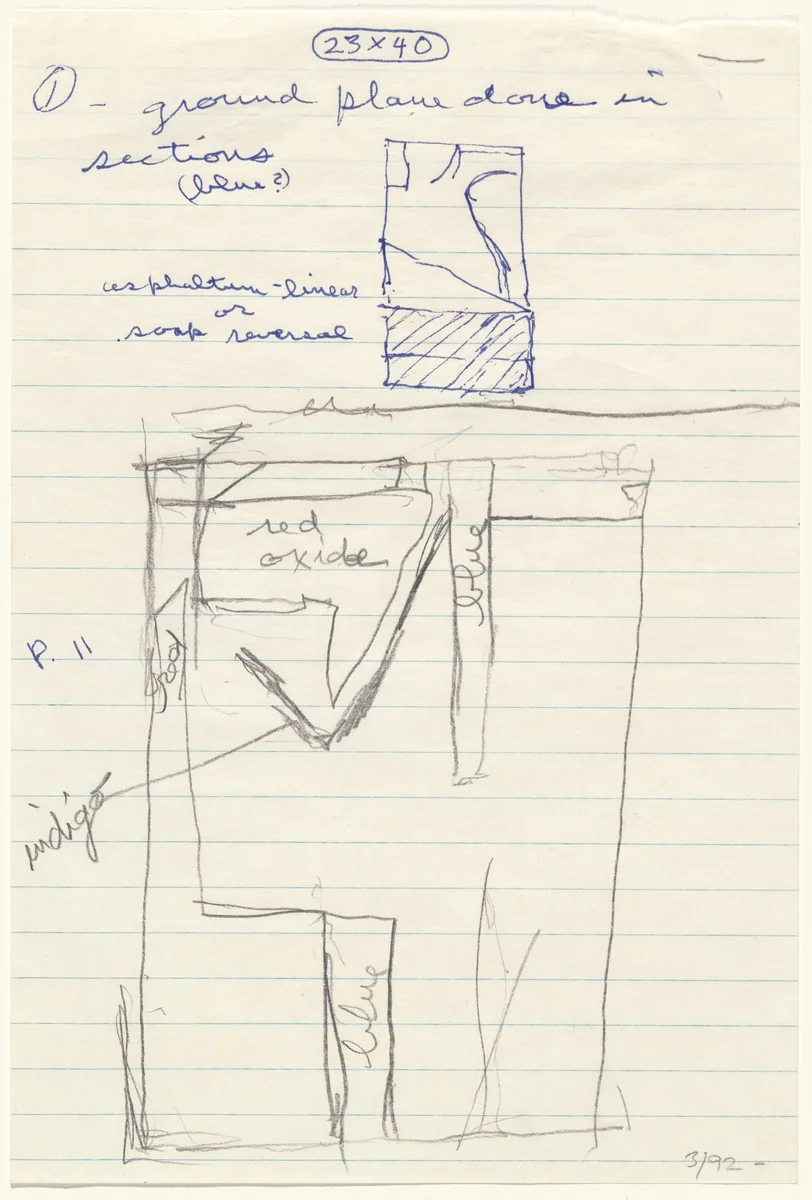 23 x 40
① - ground plane done in
sections
(blue?)
asphaltum - linear
or
soap reversal
red
oxide
blue
P. 11
indigo
blue
3/92 -